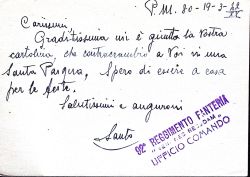 P.M. 80-19-3-42
XX
Carissimi,
Graditissima mi è giunta la vostra
cartolina che contraccambio a voi
Santa Pasqua, Spero di essere a casa
per le feste.
Salutissimi e auguroni
Santo
92° REGGIMENTO FANTERIA
UFFICIO COMANDO